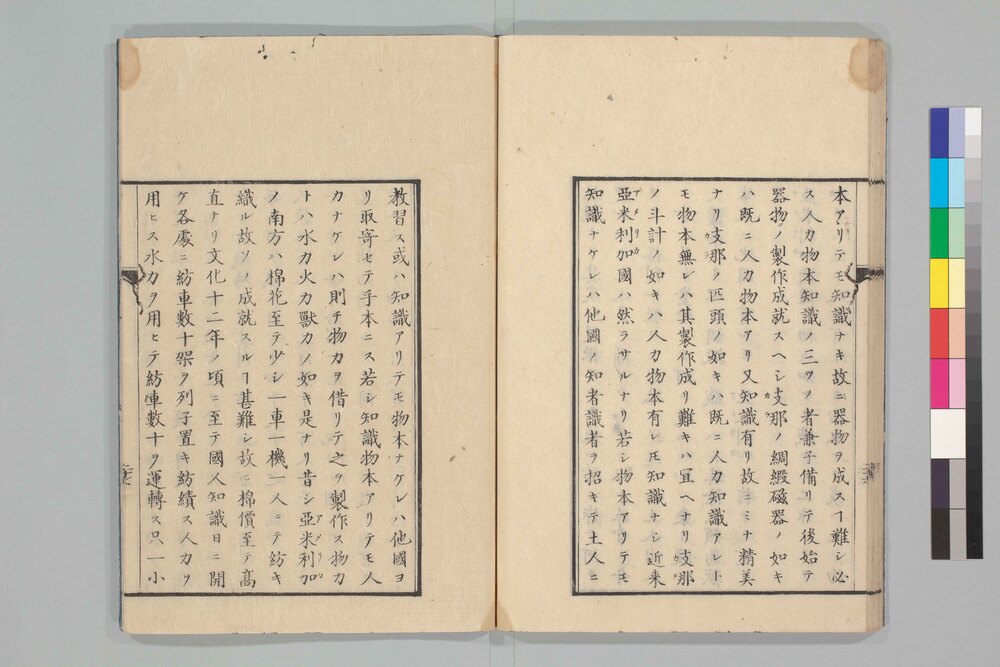 本アリテモ知識ナキ故ニ器物ヲ成スヿ難シ必
ス人力物本知識ノ三ツノ者兼子備リテ後始テ
器物ノ製作成就スヘシ支那ノ綢緞磁器ノ如キ
ハ既ニ人力物本アリ又知識有リ故ニミナ精美
ナリ支那ノ匹頭ノ如キハ既ニ人力知識アレト
モ物本無レハ其製作成リ難キハ冝ヘナリ支那
ノ斗計ノ如キハ人力物本有レモ知識ナシ近来
亜米利加國ハ然ラサルナリ若シ物本アリテモ
知識ナケレハ他國ノ知者識者ヲ招キテ土人ニ
教習ス或ハ知識アリテモ物本ナケレハ他國ヨ
リ取寄セテ手本ニス若シ知識物本アリテモ人
カナケレハ則チ物力ヲ借リテ之ヲ製作ス物力
トハ水力火力獸力ノ如キ是ナリ昔シ亜米利加
ノ南方ハ棉花至テ少シ一車一機一人ニテ紡キ
織ル故ソノ成就スルヿ甚難シ故ニ棉價至テ高
直ナリ文化十二年ノ頃ニ至テ國人知識日ニ開
ケ各處ニ紡車數十架ヲ列子置キ紡績ス人力ヲ
用ヒス水力ヲ用ヒテ紡車數十ヲ運轉ス只一小